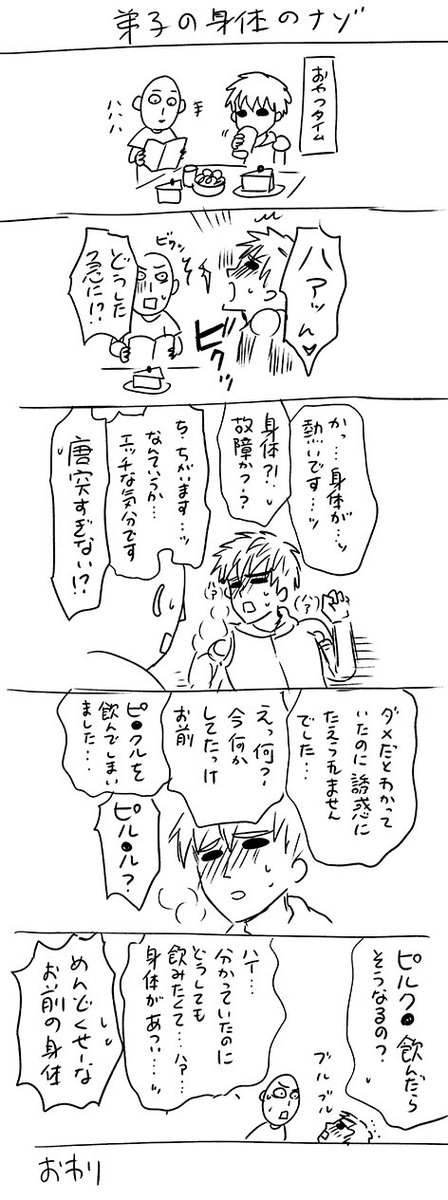 弟子の身体のナゾ
おやつタイム
ハハハ
ハァッん♥
ビクッ
ビクッ
どうした
急に!?
かっ…身体が…ッ
熱いです…ッ
身体?!
故障かっ?
ち、ちがいます…ッ
なんていうか…
エッチな気分です
唐突すぎない!?
ハァ
ハァ
ダメだとわかって
いたのに誘惑に
たえられません
でした…
えっ何?
今何か
してたっけ
お前
ピ●クルを
飲んでしまい
ました…
ピル●ル?
ピルク●飲んだら
そうなるの?
ブルブル
ハイ…
分かっていたのに
どうしても
飲みたくて…ハァ…
身体があつい…ッ
めんどくせーな
お前の身体
おわり